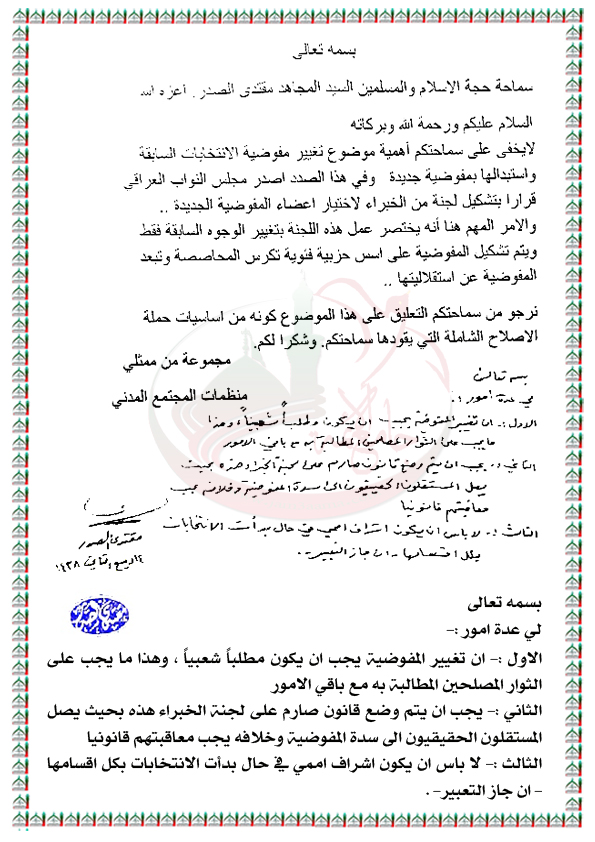 بسمه تعالى
سماحة حجة الاسلام والمسلمين السيد المجاهد مقتدى الصدر . اعزه الله
السلام عليكم ورحمة الله وبركاته
لايخفى على سماحتكم أهمية موضوع تغيير مفوضية الانتخابات السابقة
واستبدالها بمفوضية جديدة وفي هذا الصدد اصدر مجلس النواب العراقي
قرارا بتشكيل لجنة من الخبراء لاختيار اعضاء المفوضية الجديدة ..
والامر المهم هنا أنه يختصر عمل هذه اللجنة بتغيير الوجوه السابقة فقط
ويتم تشكيل المفوضية على اسس حزبية فئوية تكرس المحاصصة وتبعد
المفوضية عن استقلاليتها ..
نرجو من سماحتكم التعليق على هذا الموضوع كونه من اساسيات حملة
الاصلاح الشاملة التي يقودها سماحتكم. وشكرا لكم.
مجموعة من ممثلي
منظمات المجتمع المدني
بسمه تعالى
لي عدة امور :-
الاول :- ان تغيير المفوضية يجب ان يكون مطلباً شعبياً وهذا
ما يجب على الثوار المصلحين المطالبة به مع باقي الامور
الثاني :- يجب ان يتم وضع قانون صارم على لجنة الخبراء هذه بحيث
يصل المستقلون الحقيقيون الى سدة المفوضية وخلافه يجب
معاقبتهم قانونيا
الثالث :- لا باس ان يكون اشراف اممي في حال بدأت الانتخابات
بكل اقسامها - ان جاز التعبير -
مقتدى الصدر
١٤٣٨
بسمه تعالى
لي عدة امور :-
الاول :- ان تغيير المفوضية يجب ان يكون مطلباً شعبياً ، وهذا ما يجب على
الثوار المصلحين المطالبة به مع باقي الامور
الثاني :- يجب ان يتم وضع قانون صارم على لجنة الخبراء هذه بحيث يصل
المستقلون الحقيقيون الى سدة المفوضية وخلافه يجب معاقبتهم قانونيا
الثالث :- لا باس ان يكون اشراف اممي في حال بدأت الانتخابات بكل اقسامها
- ان جاز التعبير- .